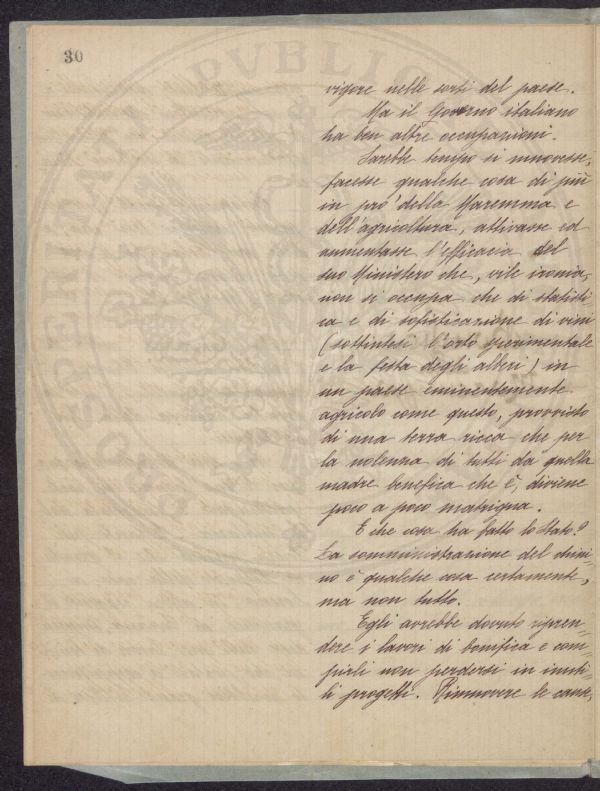 30
vigore nelle sorti del paese.
Ma il Governo italiano
ha ben altre occupazioni.
Sarebbe tempo si muovesse,
facesse qualche cosa di più
in pro' della Maremma e
dell'agricoltura, attivasse ed
aumentasse l'efficacia del
suo Ministero che, vile ironia,
non si occupa che di statisti-
ca e di sofisticazione di vini
(sottintesi l'orto sperimentale
e la festa degli alberi) in
un paese eminentemente
agricolo come questo, provvisto
di una terra ricca che per
la nolenza di tutti da quella
madre benefica che è, diviene
poco a poco matrigna.
E che cosa ha fatto lo Stato?
La somministrazione del chini-
no è qualche cosa certamente,
ma non tutto.
Egli avrebbe dovuto ripren-
dere i lavori di bonifica e com-
pirli non perdersi in inuti-
li progetti. Rimuovere le cause,